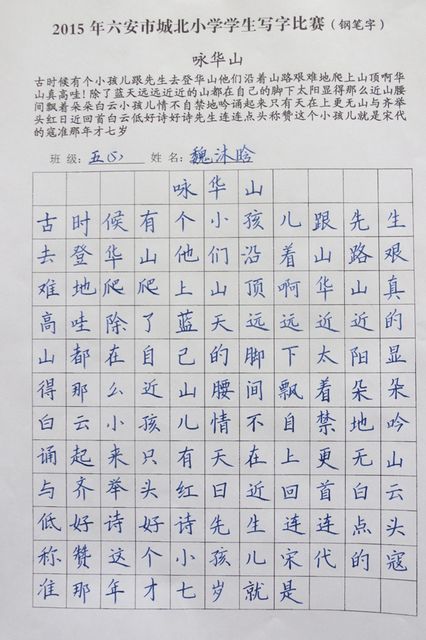 2015年六安市城北小学学生写字比赛（钢笔字）
咏华山
古时候有个小孩儿跟先生去登华山他们沿着山路艰难地爬上山顶啊华
山真高哇！除了蓝天远远近近的山都在自己的脚下太阳显得那么近山腰
间飘着朵朵白云小孩儿情不自禁地吟诵起来只有天在上更无山与齐举
头红日近回首白云低好诗好诗先生连连点头称赞这个小孩儿就是宋代
的寇准那年才七岁
班级：五 姓名：魏沐晗
咏华山
古时候有个小孩儿跟先生
去登华山他们沿着山路艰
难地爬爬上山顶啊华山真
高哇除了蓝天远远近近的
山都在自己的脚下太阳显
得那么近山腰间飘着朵朵
白云小孩儿情不自禁地吟
诵起来只有天在上更无山
与齐举头红日近回首白云
低好诗好诗先生连连点头
称赞这个小孩儿宋代的寇
准那年才七岁就是